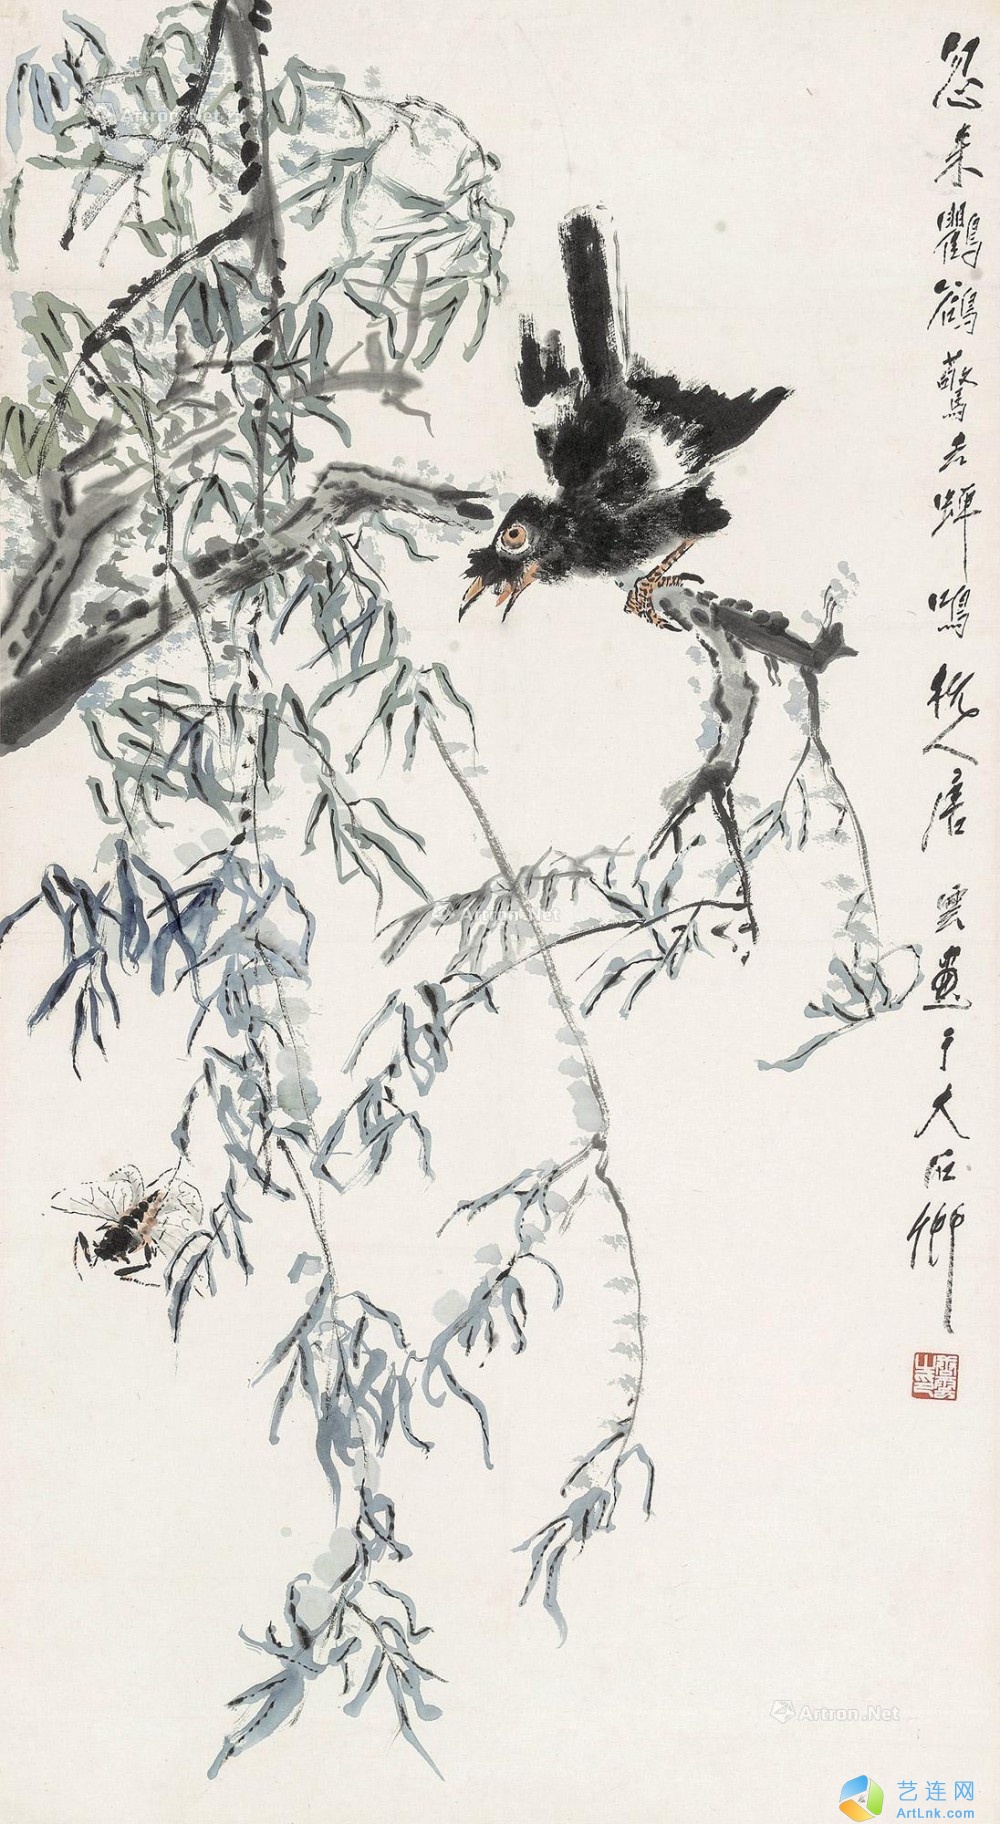 忽来鸜鹆惊去蝉鸣杭人唐雲畫于大石鄉
唐雲之印
Artron.Net
Artron.Net
Artron.Net
艺连网
ArtLnk.com